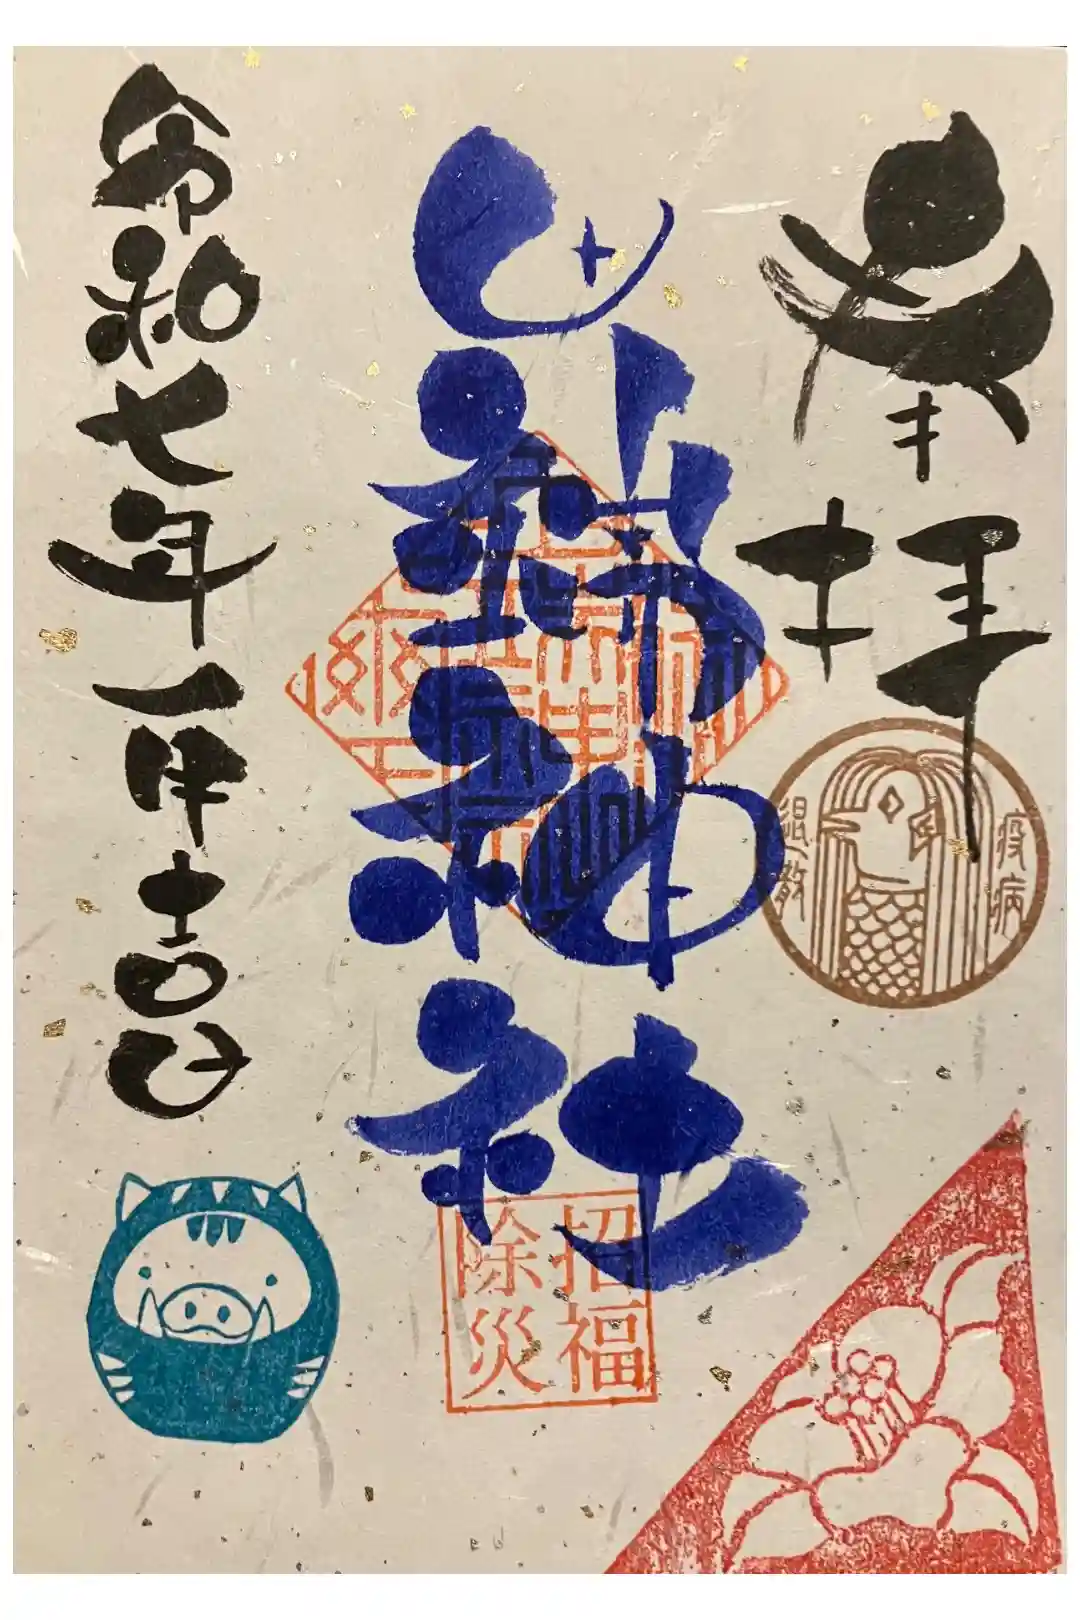 奉拝
神社
令和七年一月吉日
疫病
退散
招福
除災